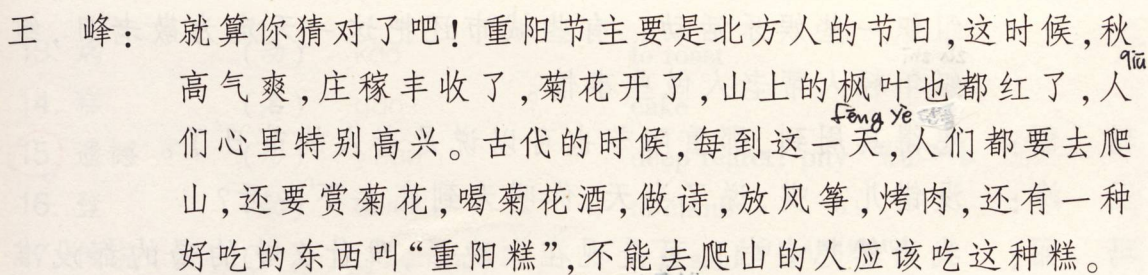 王　峰：就算你猜对了吧！重阳节主要是北方人的节日，这时候，秋
qiū
高气爽，庄稼丰收了，菊花开了，山上的枫叶也都红了，人
fēng yè
们心里特别高兴。古代的时候，每到这一天，人们都要去爬
山，还要赏菊花，喝菊花酒，做诗，放风筝，烤肉，还有一种
好吃的东西叫“重阳糕”，不能去爬山的人应该吃这种糕。